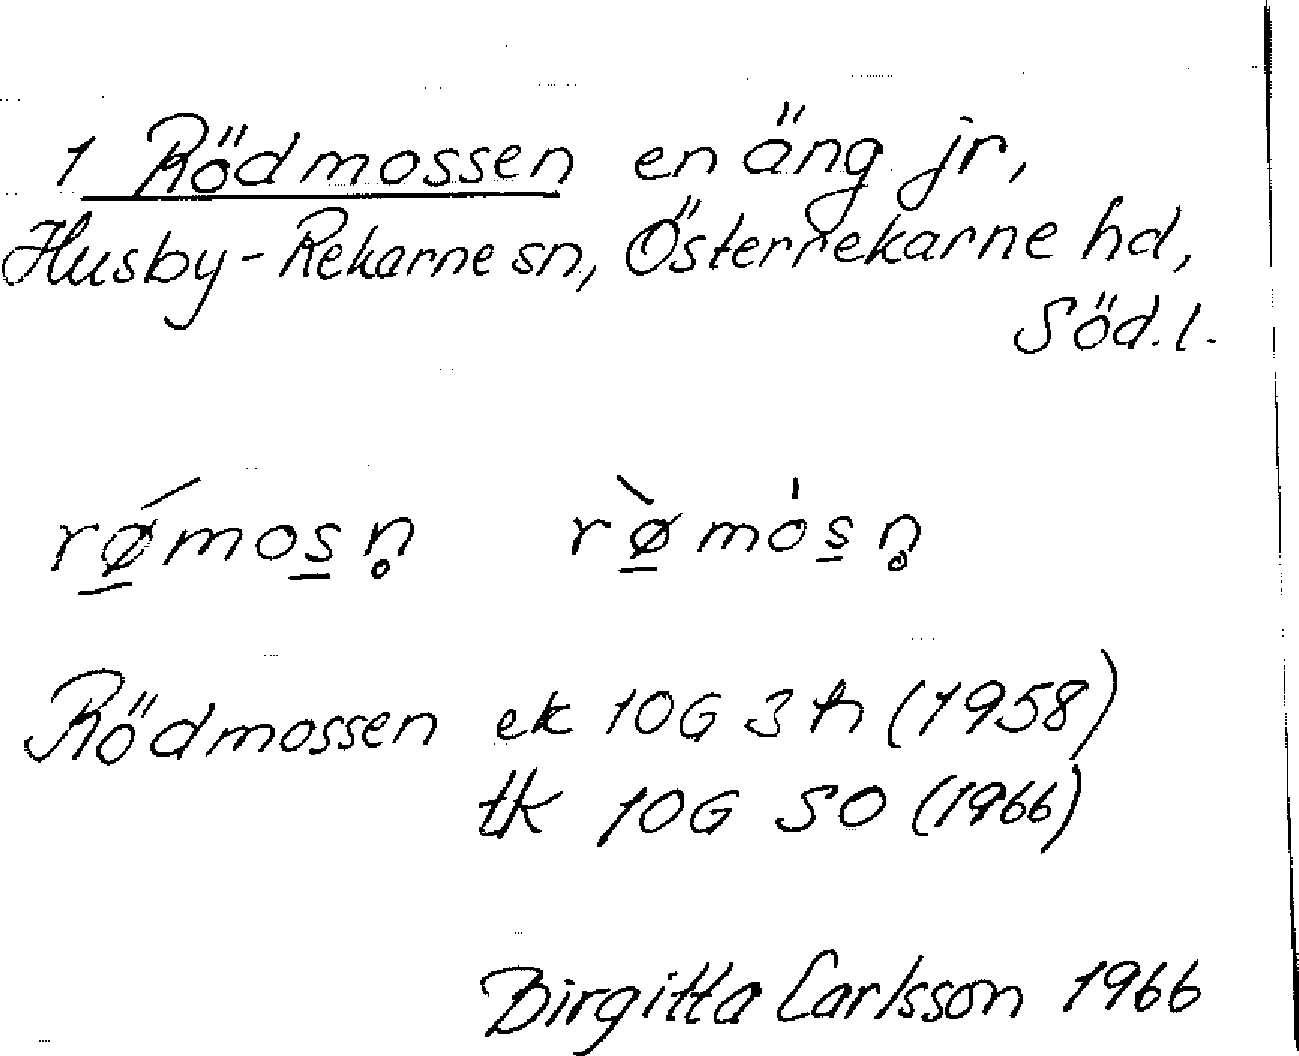 1 Rödmossen en äng jr,
Husby-Rekarne sn, Österrekarne hd,
Söd. l.
rǿ̲mos̲n̥ rø̲̀mòs̲n̥
Rödmossen ek 10G 3h (1958)
tk 10G SO (1966)
Birgitta Carlsson 1966